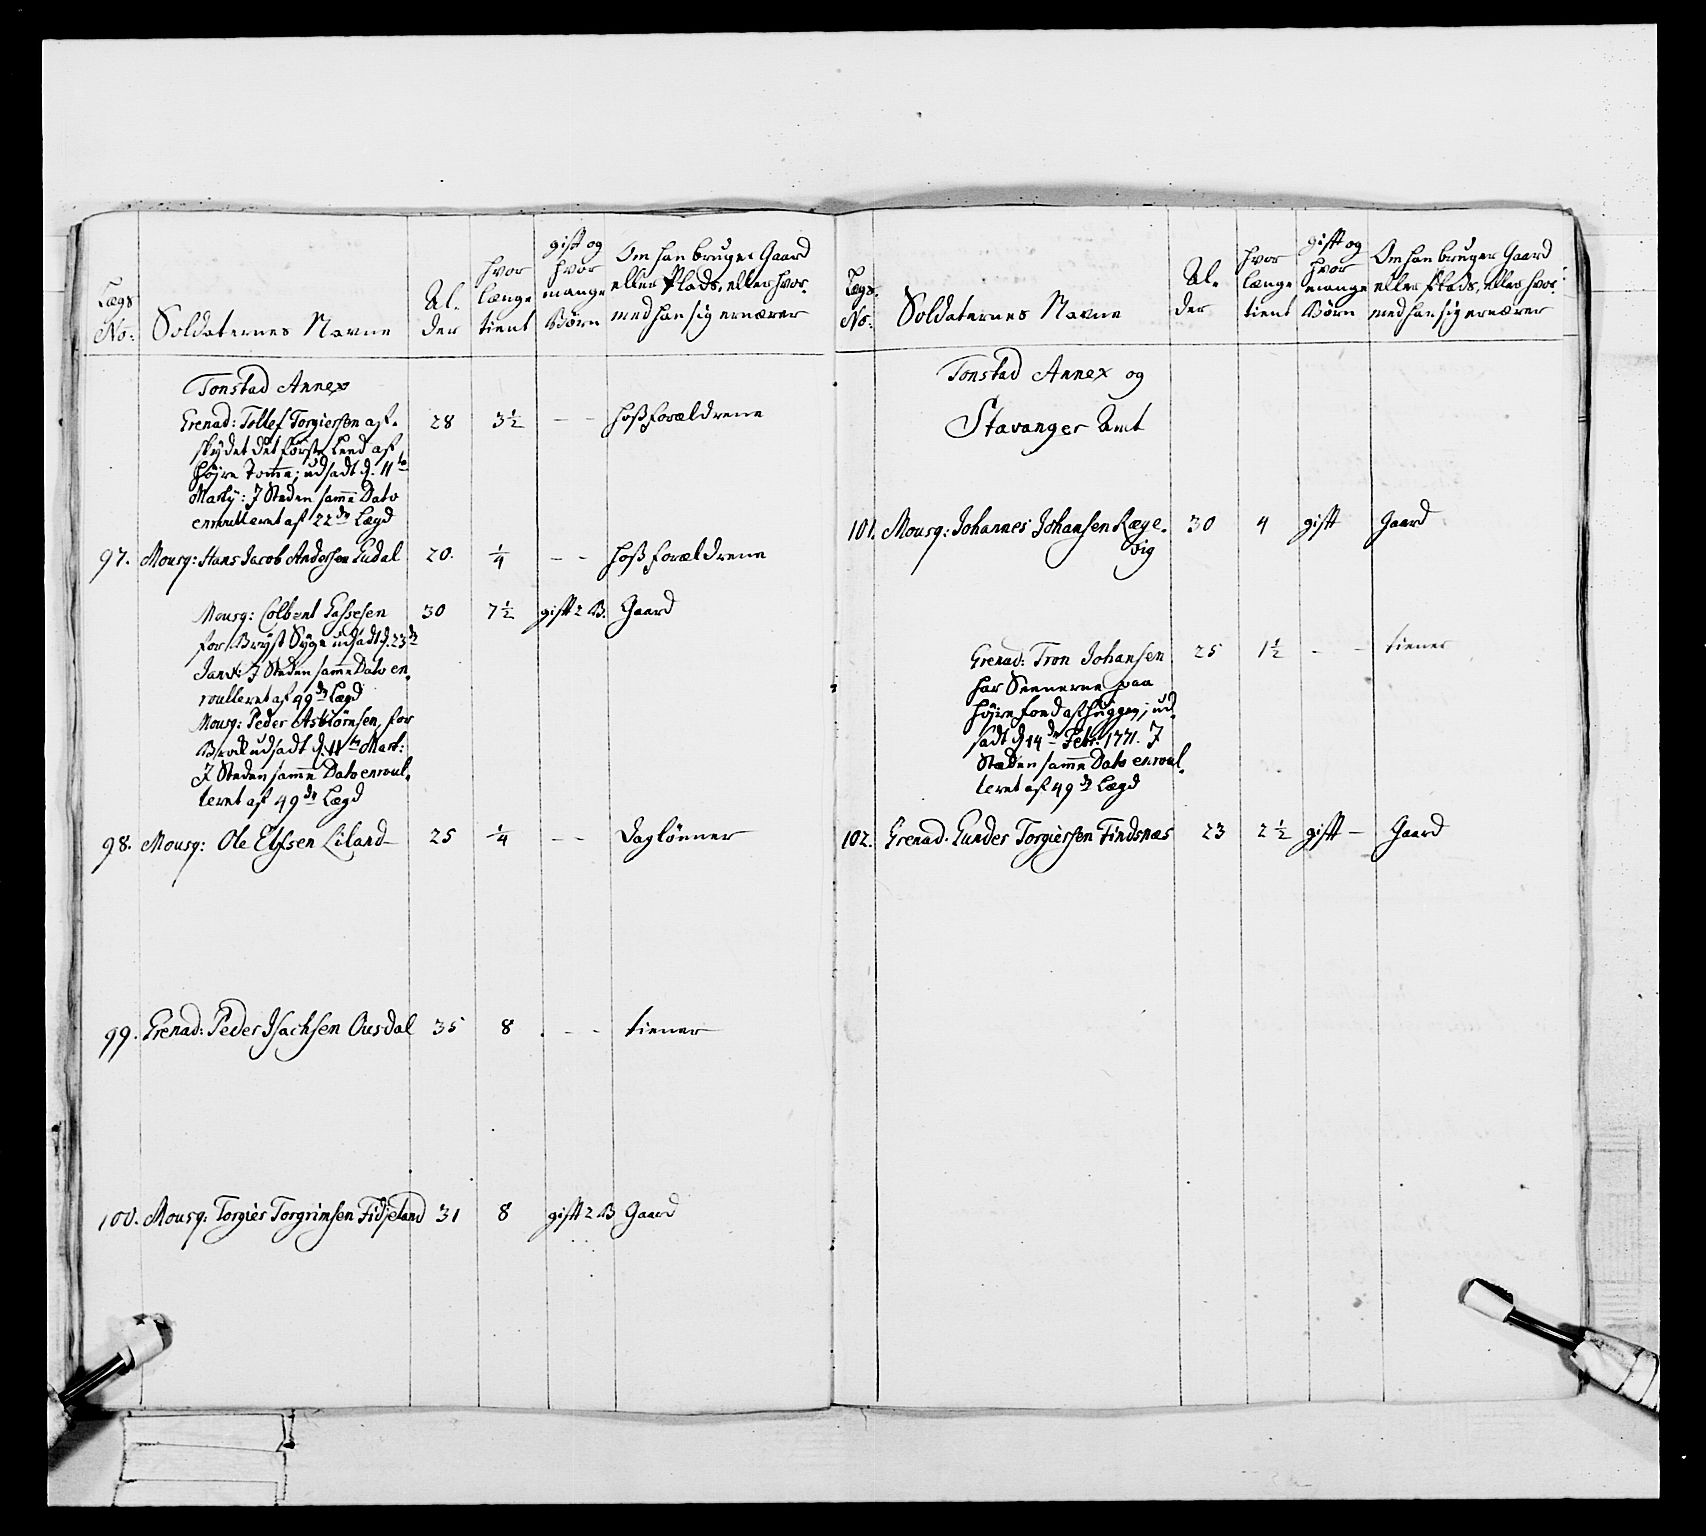 Lægs No: Soldaternes Navne Al- der hvor længe tient gift og hvor mange Börn Om han bruger Gaard eller Plads, eller hvor- med han sig ernærer
Tonstad Annex
Grenad: Tollef Torgiersen af- 28 3½ – – hoß forældrene
skydet det første Leed af
høyre Tomme; udsadt d. 11te
Marty: I Steden samme Dato
enroulleret af 22de Lægd
97. Mousq: Hans Jacob Andersen Gudal 20. ¼ – – hoß forældrene
Mousq: Colbent Gassesen 30 7½ gift 2 B. Gaard
for Bryst Syge udsadt d. 23de
Janv: I Steden samme Dato en-
roulleret af 99de Lægd
Mousq: Peder Asbiörnsen, for
Brok udsadt d. 11te Mart:
I Steden samme Dato enroul-
leret af 49de Lægd
98. Mousq: Ole Elfsen Liland – 25 ¼ – – Daglönner
99. Grenad: Peder Isachsen Ousdal 35 8 . – – tiener
100. Mousq: Torgier Torgrimsen Fidjeland 31 8 gift 2 B Gaard
Lægs- No: Soldaternes Navne Al- der hvor længe tient gift og hvor mange Börn Om han bruger Gaard eller Plads, eller hvor- med han sig ernærer
Tonstad Annex og
Stavanger Amt
101. Mousq: Johannes Johansen Ræge- 30 4 gift Gaard
vig
Grenad: Tron Johansen 25 1½ – – tiener
har Seenerne paa
høyre Haand afhuggen; ud-
sadt d 14de Febr: 1771. I
Steden samme Dato enroul-
leret af 49de Lægd
102. Grenad. Gunder Torgiersen Findsnæs 23 2½ gift – Gaard